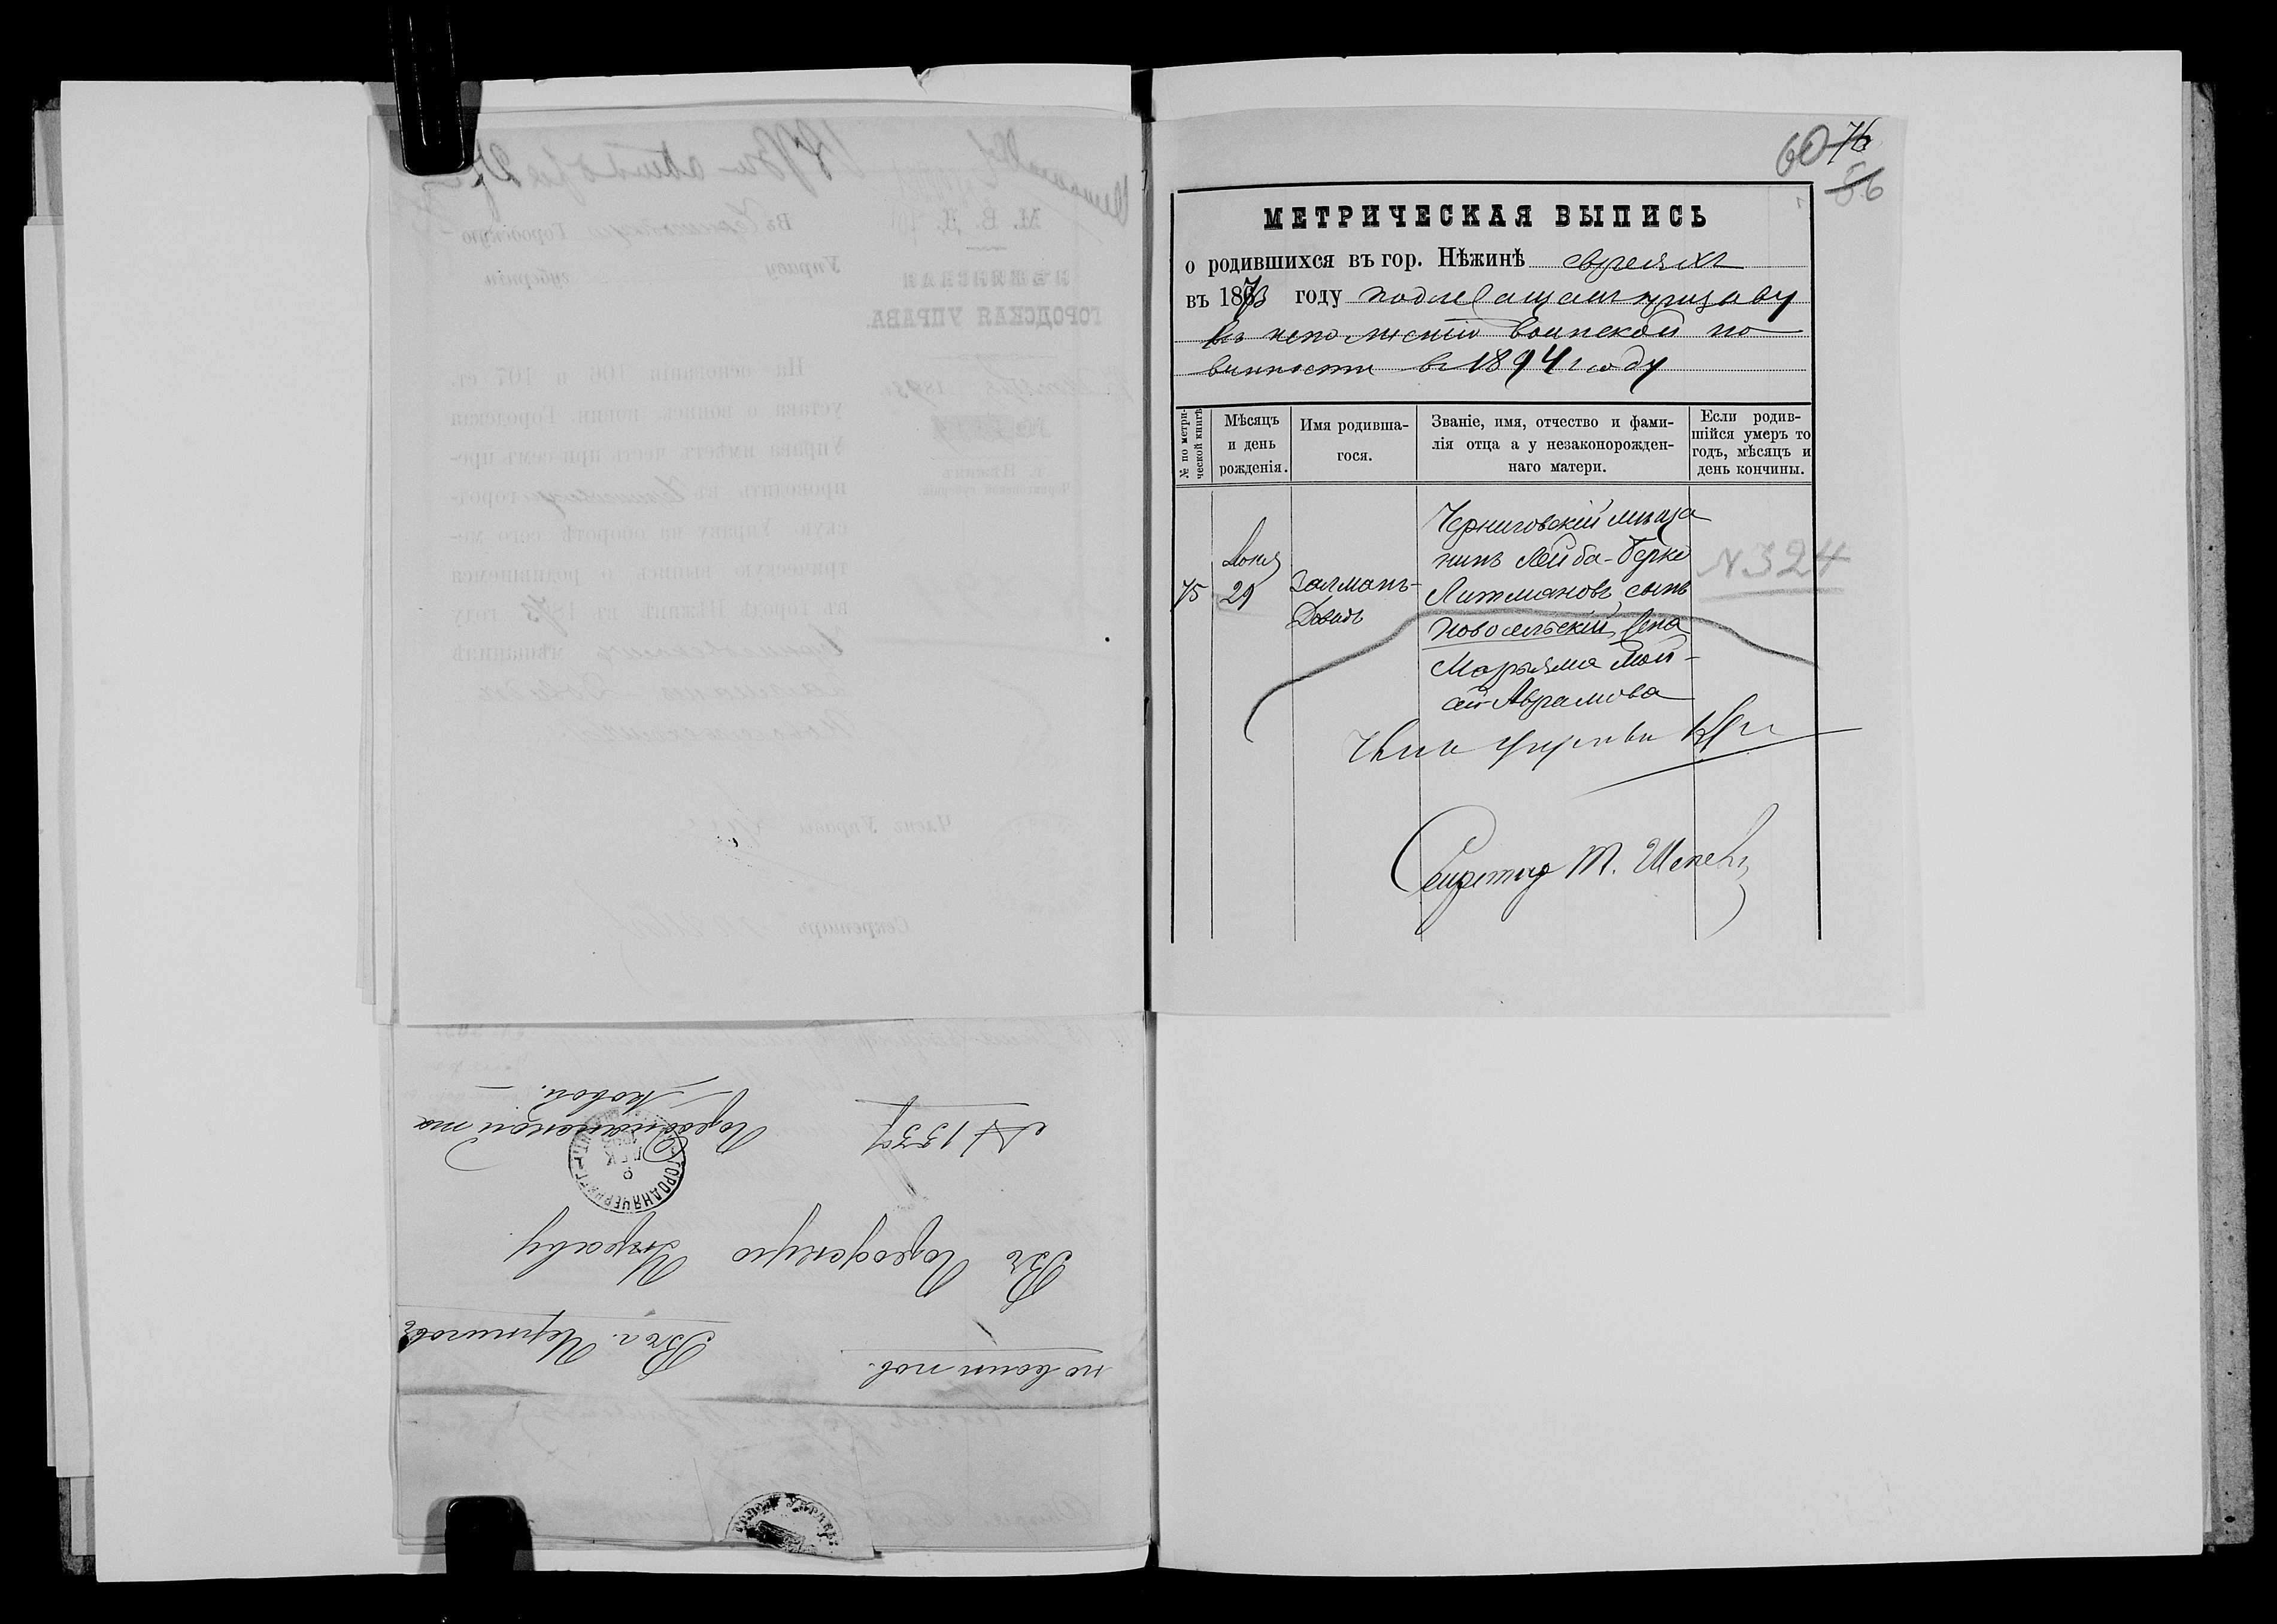 60 76
56
МЕТРИЧЕСКАЯ ВЫПИСЬ
о родившихся въ гор. Нѣжинѣ евреяхъ
въ 1873 году подлежащемъ призыву
къ исполненію воинской по
винности въ 1894 году
№ по метри-
ческой книгѣ
Мѣсяцъ
и день
рожденія.
Имя родивша-
гося.
Званіе, имя, отчество и фами-
лія отца а у незаконорожден-
наго матери.
Если родив-
шійся умеръ то
годъ, мѣсяцъ и
день кончины.
75
29
Залманъ-
Довидъ
Черниговскій мѣща
нинъ Лейба-Берко
Литмановъ сынъ
Новосельскій, жена
Марьяма Мов-
Аврамова
N 324
Членъ Управы
Секретарь Т.
по воин. пов.
Въ г. Черниговъ
Въ Городскую Управу
№ 1337
Городнянской го
ГОРОДНЯ ЧЕРНИГ.
8
ДЕК
М. В. Д.
НѢЖИНСКАЯ
ГОРОДСКАЯ УПРАВА.
1893 г.
г. Нѣжинъ
Черниговской губерніи.
Въ Черниговскую Городскую
Управу губерніи
На основаніи 106 и 107 ст.
устава о воинск. повин. Городская
Управа имѣетъ честь при семъ пре-
проводить въ Черниговскую город-
скую Управу на оборотѣ сего ме-
трическую выпись о родившемся
въ городѣ Нѣжинѣ въ 1873 году
Черниговскомъ мѣщанинѣ
Залманъ-Довидъ
Новосельскомъ
Членъ Управы
Секретарь